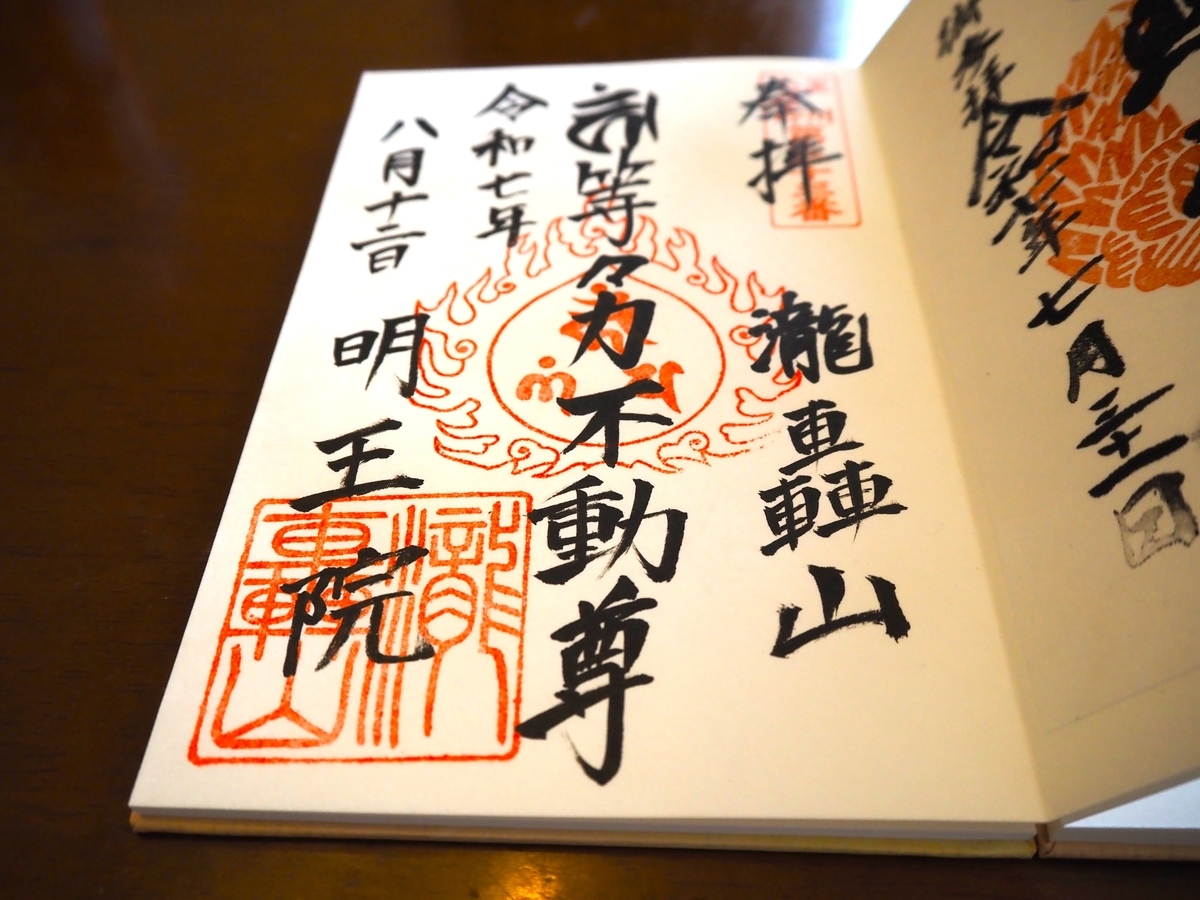 奉拝
瀧轟山
等々力不動尊
令和七年
八月十二日
明王院
瀧轟山
七月三十一日